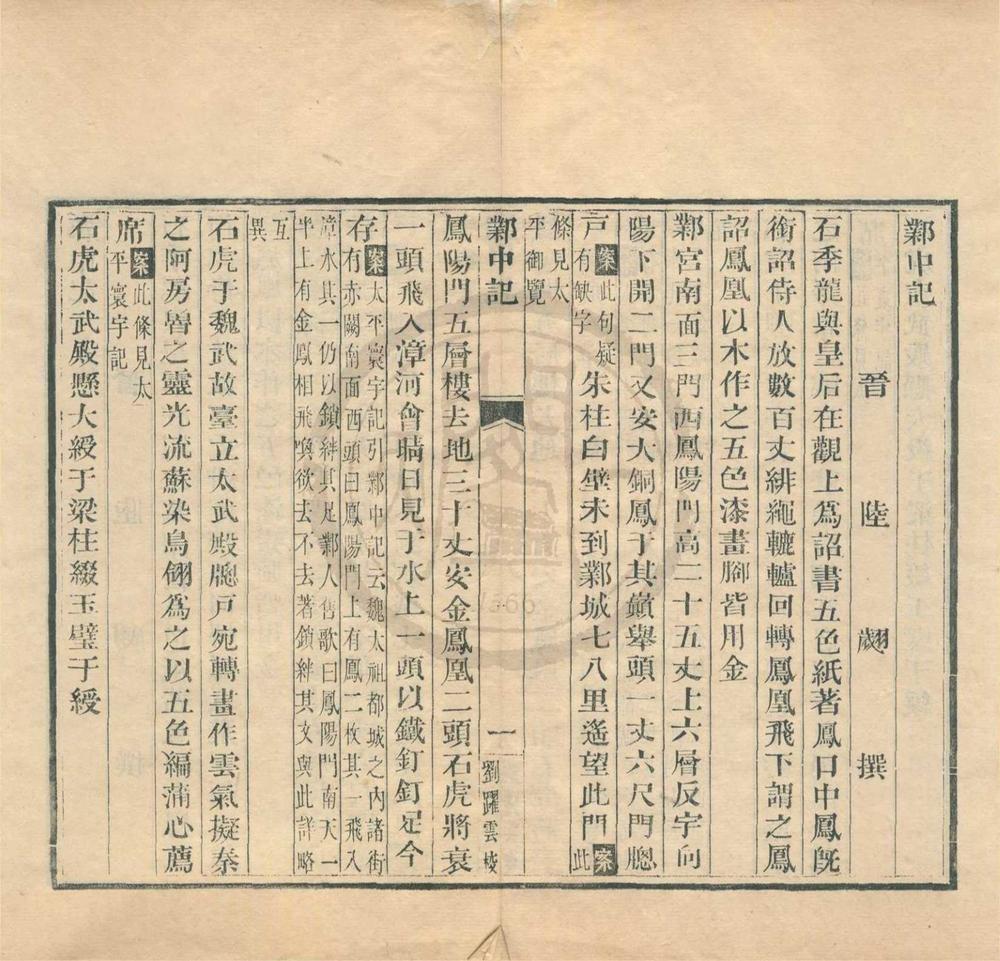 鄴中記
晉　陸　翽　撰
石季龍與皇后在觀上爲詔書五色紙著鳳口中鳳旣
銜詔侍人放數百丈緋繩轆轤回轉鳳凰飛下謂之鳳
詔鳳凰以木作之五色漆畫腳皆用金
鄴宮南面三門西鳳陽門高二十五丈上六層反宇向
陽下開二門又安大銅鳳于其巔舉頭一丈六尺門牕
戸案此句疑有缺字朱柱白壁未到鄴城七八里遙望此門案此
條見太平御覽
鄴中記
一
劉躍雲校
鳳陽門五層樓去地三十丈安金鳳凰二頭石虎將衰
一頭飛入漳河會晴日見于水上一頭以鐵釘釘足今
存案太平寰宇記引鄴中記云魏太祖都城之內諸街有赤闕南面西頭曰鳳陽門上有鳳二枚其一飛入
漳水其一仍以鎖絆其足鄴人售歌曰鳳陽門南天一半上有金鳳相飛喚欲去不去著鎖絆其文與此詳略
互異
石虎于魏武故臺立太武殿牕戸宛轉畫作雲氣擬秦
之阿房魯之靈光流蘇染鳥翎爲之以五色編蒲心薦
席案此條見太平寰宇記
石虎太武殿懸大綬于梁柱綴玉璧于綬